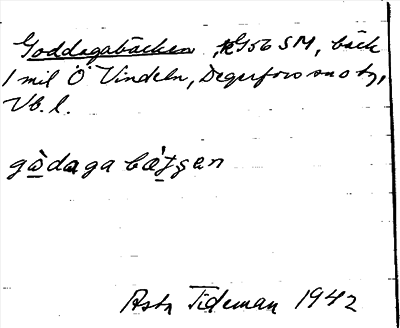 Goddagabäcken, G56 SM, bäck
1 mil Ö Vindeln, Degerfors sn o tg,
Vb. l.
gò̲daga bä̀t̲şen
Astr Tideman 1942